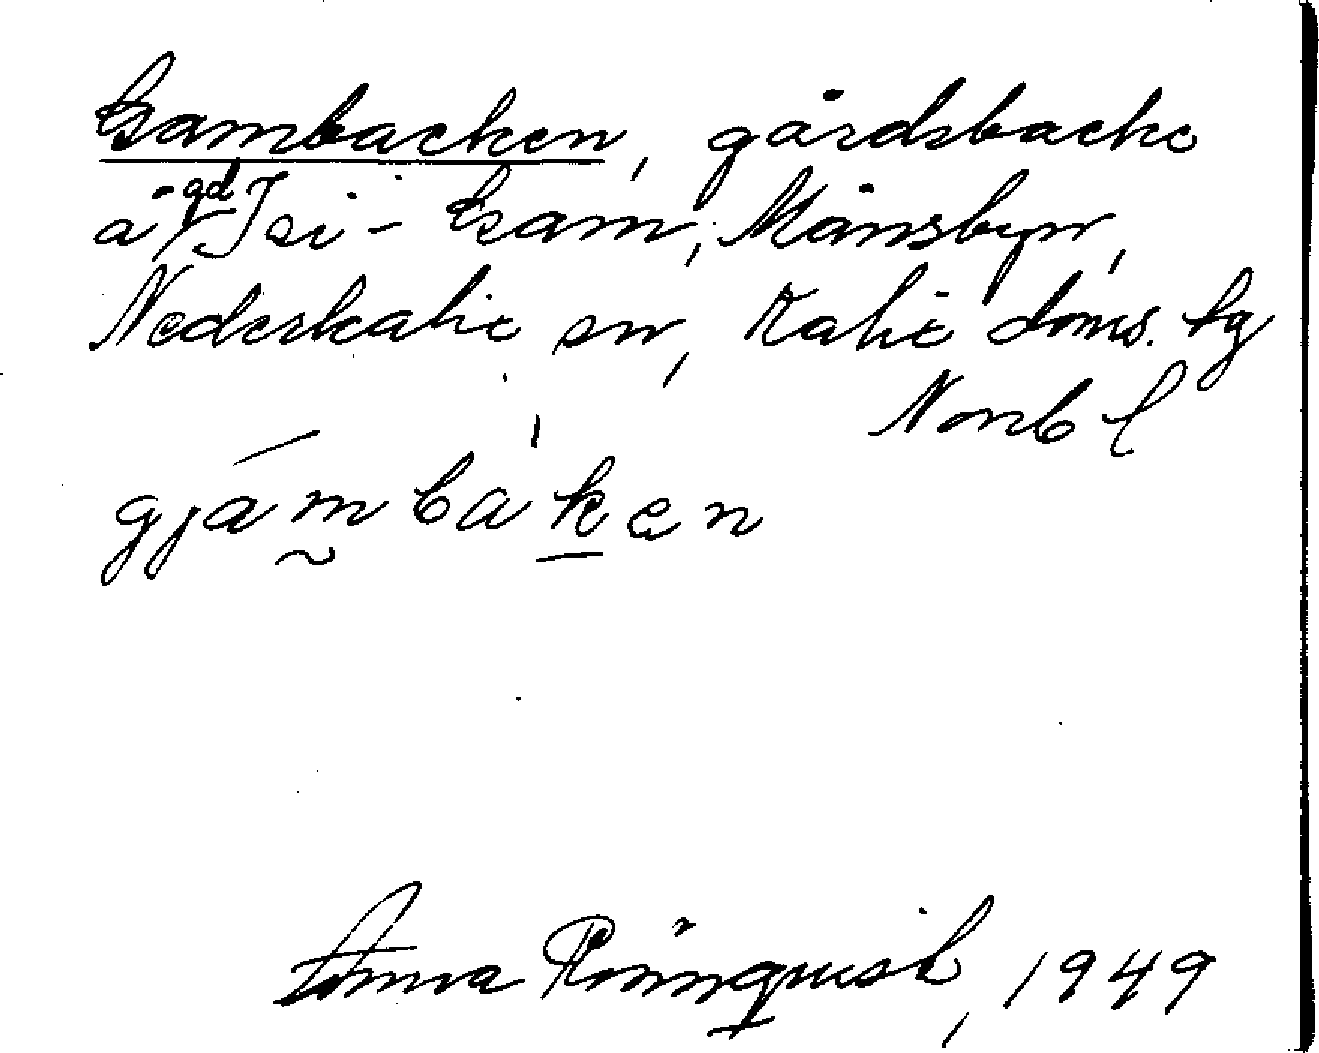 Gambacken, gårdsbacke
å gd Isi-Gam, Månsbyn,
Nederkalix sn, Kalix doms. tg
Norrb l
gjámbàken
Anna Rönnquist, 1949